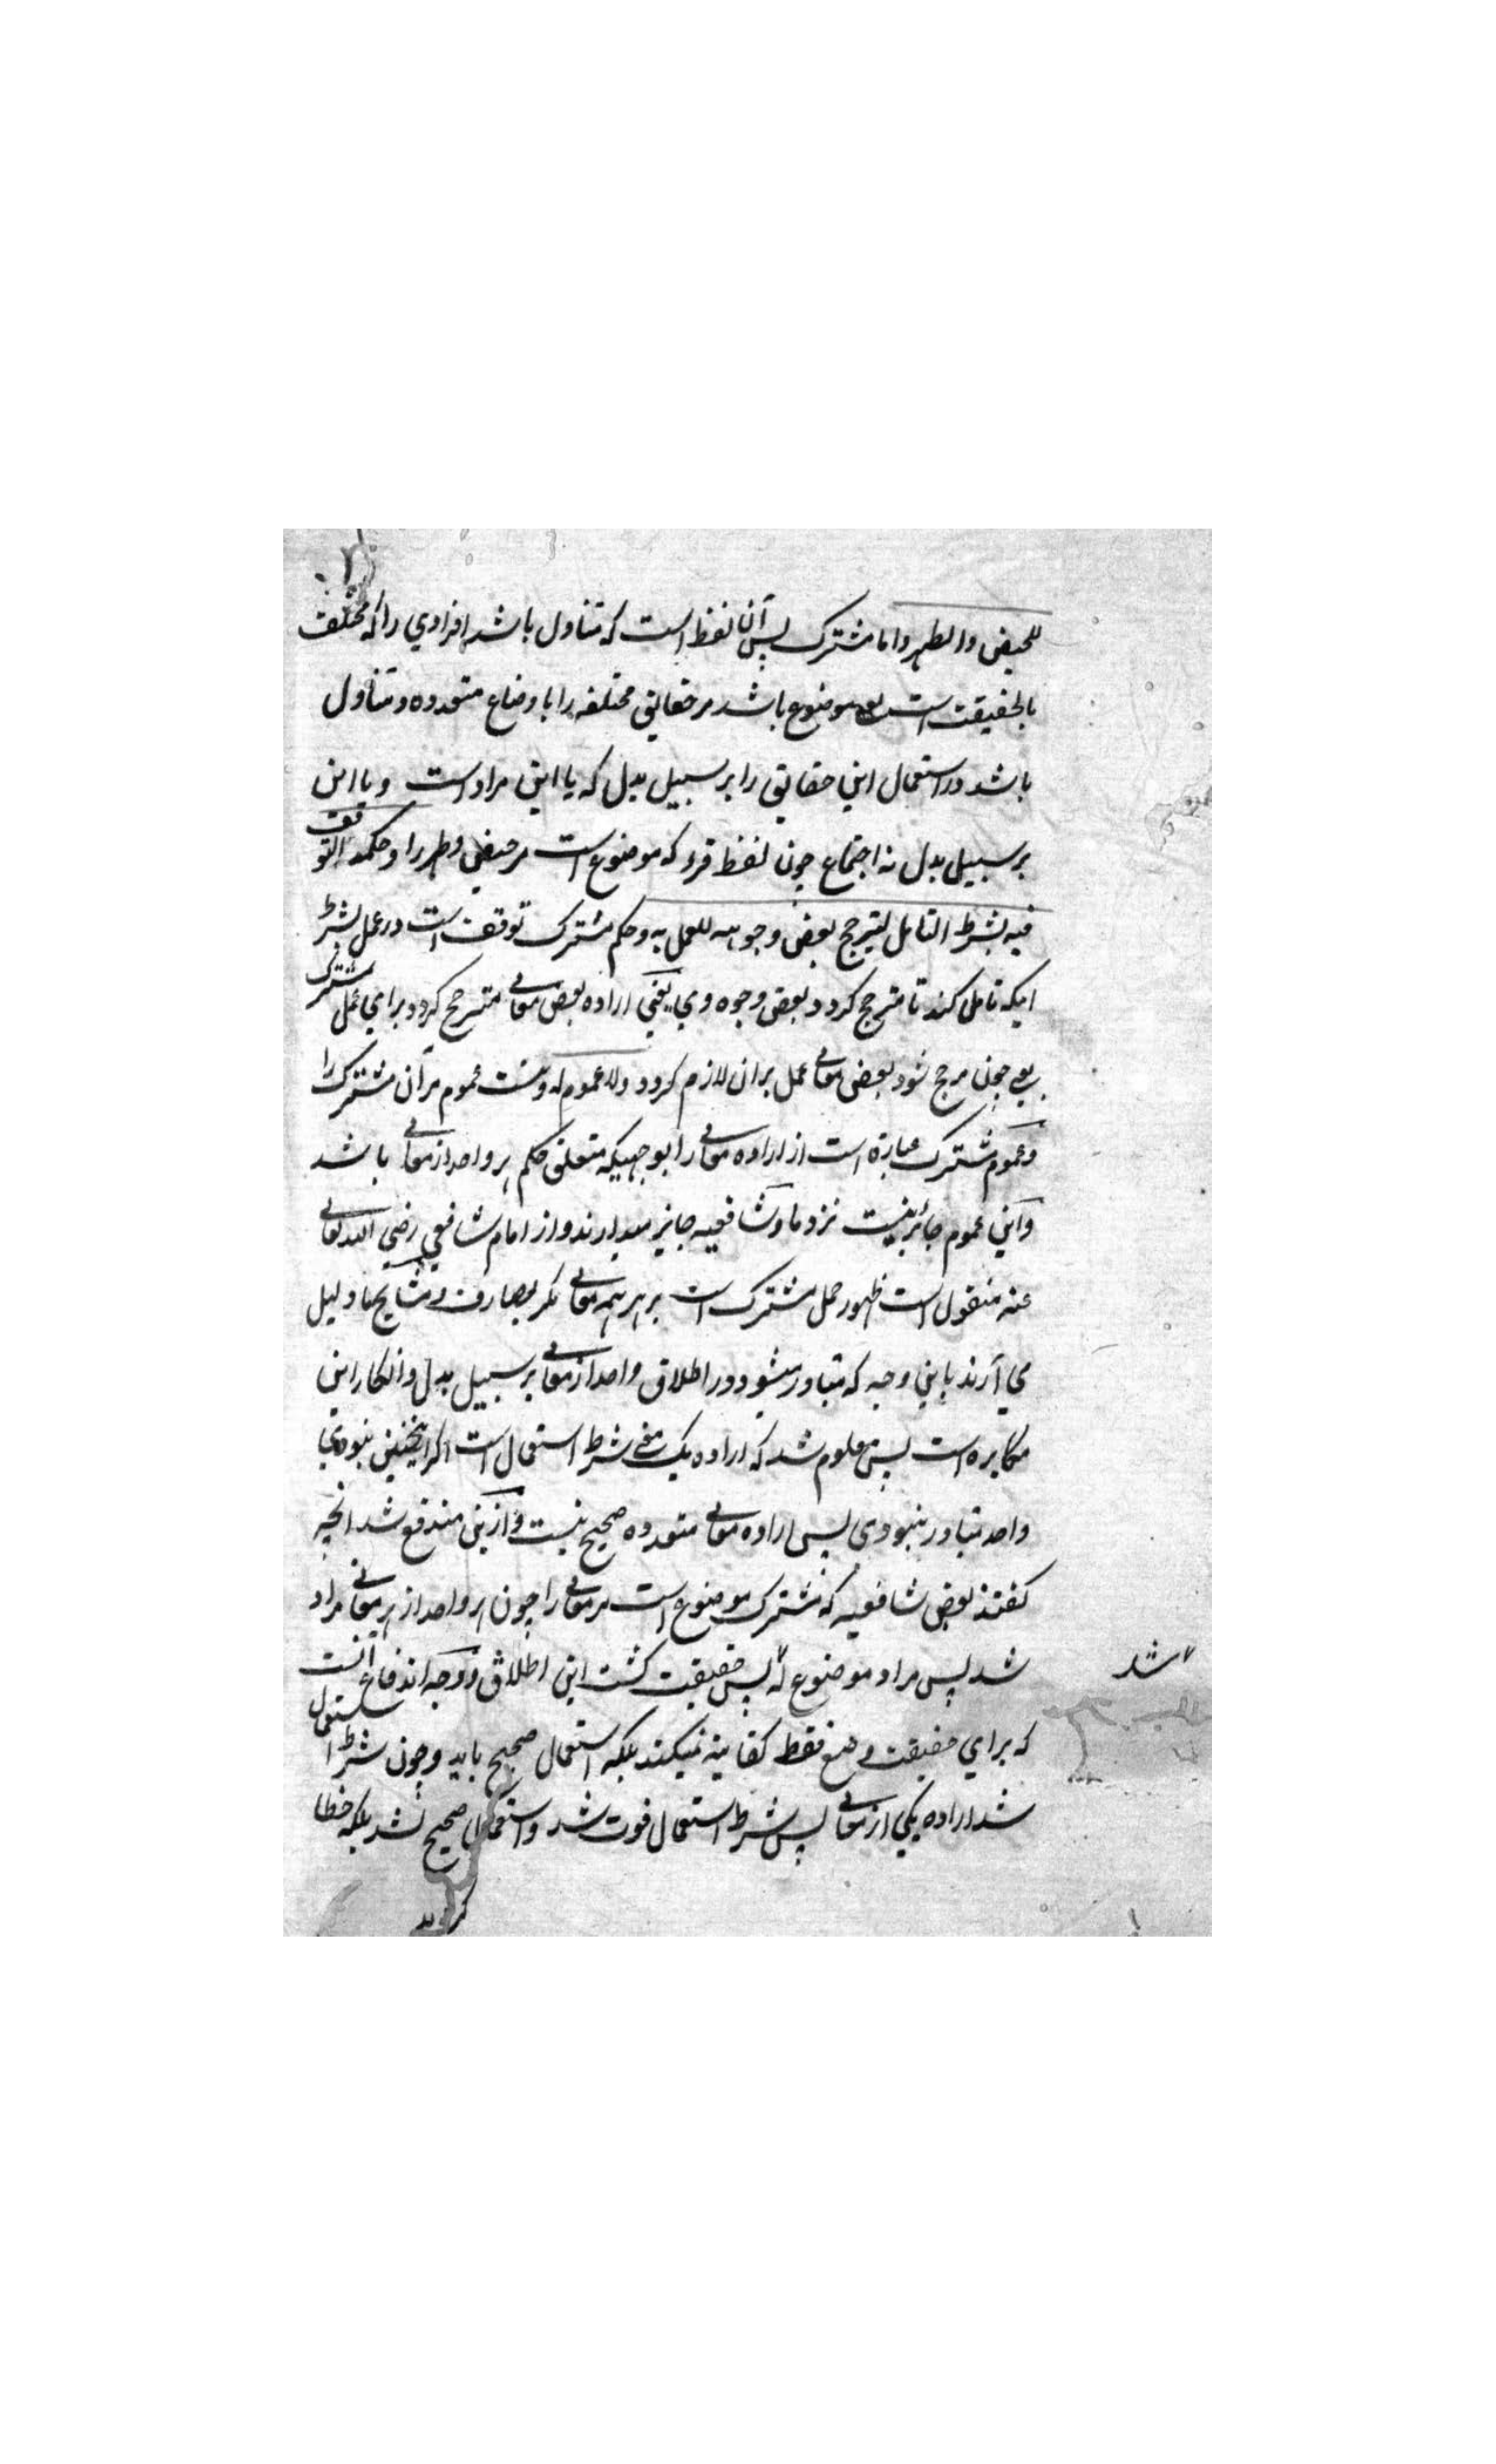 للحیض والطهر واما مشترک پس آن لفظ است که تناول باشد افرادي را که مختلف
بالحقیقت است موضوع باشد مر حقایق مختلفه را باوضاع متعدده و تناول
باشد در استعمال این حقایق را بر سبیل بدل که یا این مراد است و یا این
بر سبیل بدل نه اجتماع چون لفظ قرء که موضوع است مر حیض و طهر را وحکمه التوقف
فیه بشرط التامل لیترجح بعض وجوهه للعمل به وحکم مشترک توقف است در عمل بشرط
اینکه تامل کند تا مترجح کردد بعض وجوه وي یعنی اراده بعض معانی مترجح کردد براي عمل مشترک
یعنی چون مرجح شود بعض معانی عمل بران لازم کردد ولا عموم له ونیست عموم مر آن مشترک را
وعموم مشترک عبارة است از اراده معانی را بوجهیکه متعلق حکم هر واحد از معانی باشد
واین عموم جائز نیست نزد ما وشافعیه جایز میدارند و از امام شافعي رضي الله تعالی
عنه منقول است ظهور حمل مشترک است بر هر همه معانی مکر بصارف ومشایخ ما دلیل
مي آرند باین وجه که تبادر میشود در اطلاق واحد از معانی بر سبیل بدل وانکار این
مکابره است پس معلوم شد که اراده یک معنی شرط استعمال است اکر اینچنین نبودي
واحد تبادر ننبودی پس اراده معانی متعدده صحیح نیست وازین مندفع شد انچه
کفتند بعض شافعیه که مشترک موضوع است مر معانی را چون هر واحد از هر معانی مراد
شد پس مراد موضوع له پس حقیقت کشت این اطلاق ووجه اندفاع آنست
شد
که براي حقیقت وضع فقط کفایة نمیکند بلکه استعمال صحیح باید وچون شرط استعمال
شد اراده یکي از معانی پس شرط استعمال فوت شد واستعمال صحیح نشد بلکه خطا